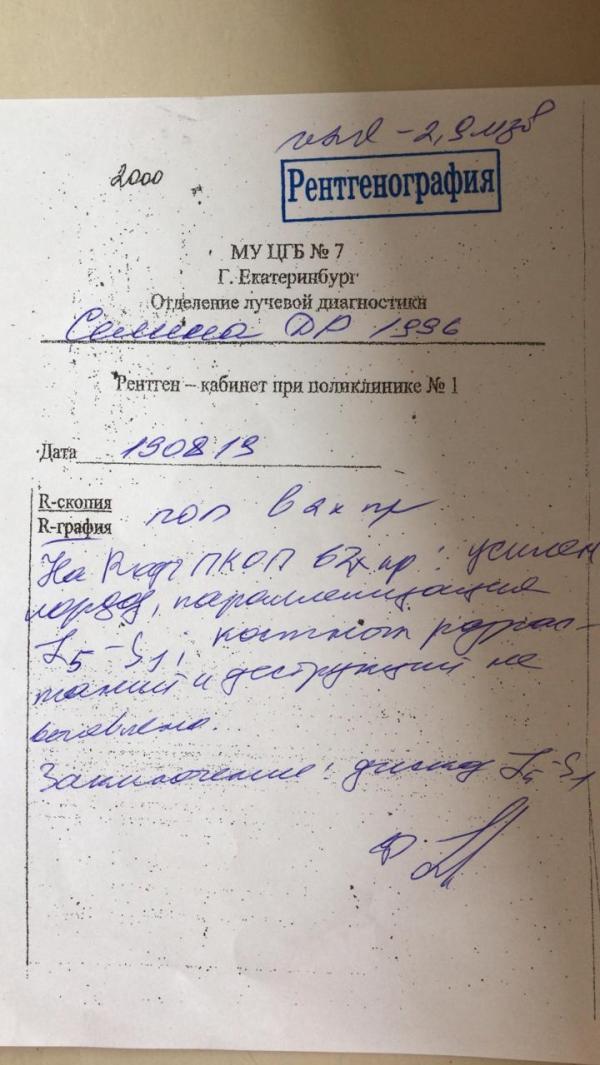 - 2,9 мзв
2000
Рентгенография
МУ ЦГБ № 7
Г. Екатеринбург
Отделение лучевой диагностики
Селина ДР 1996
Рентген – кабинет при поликлинике № 1
Дата 190819
R-скопия
R-графия поп в 2х пр
На R-гр ПКОП в 2х пр: усилен
лордоз, параллелизация
L5-S1; костных разрас-
таний и деструкций не
выявлено.
Заключение: L5-S1